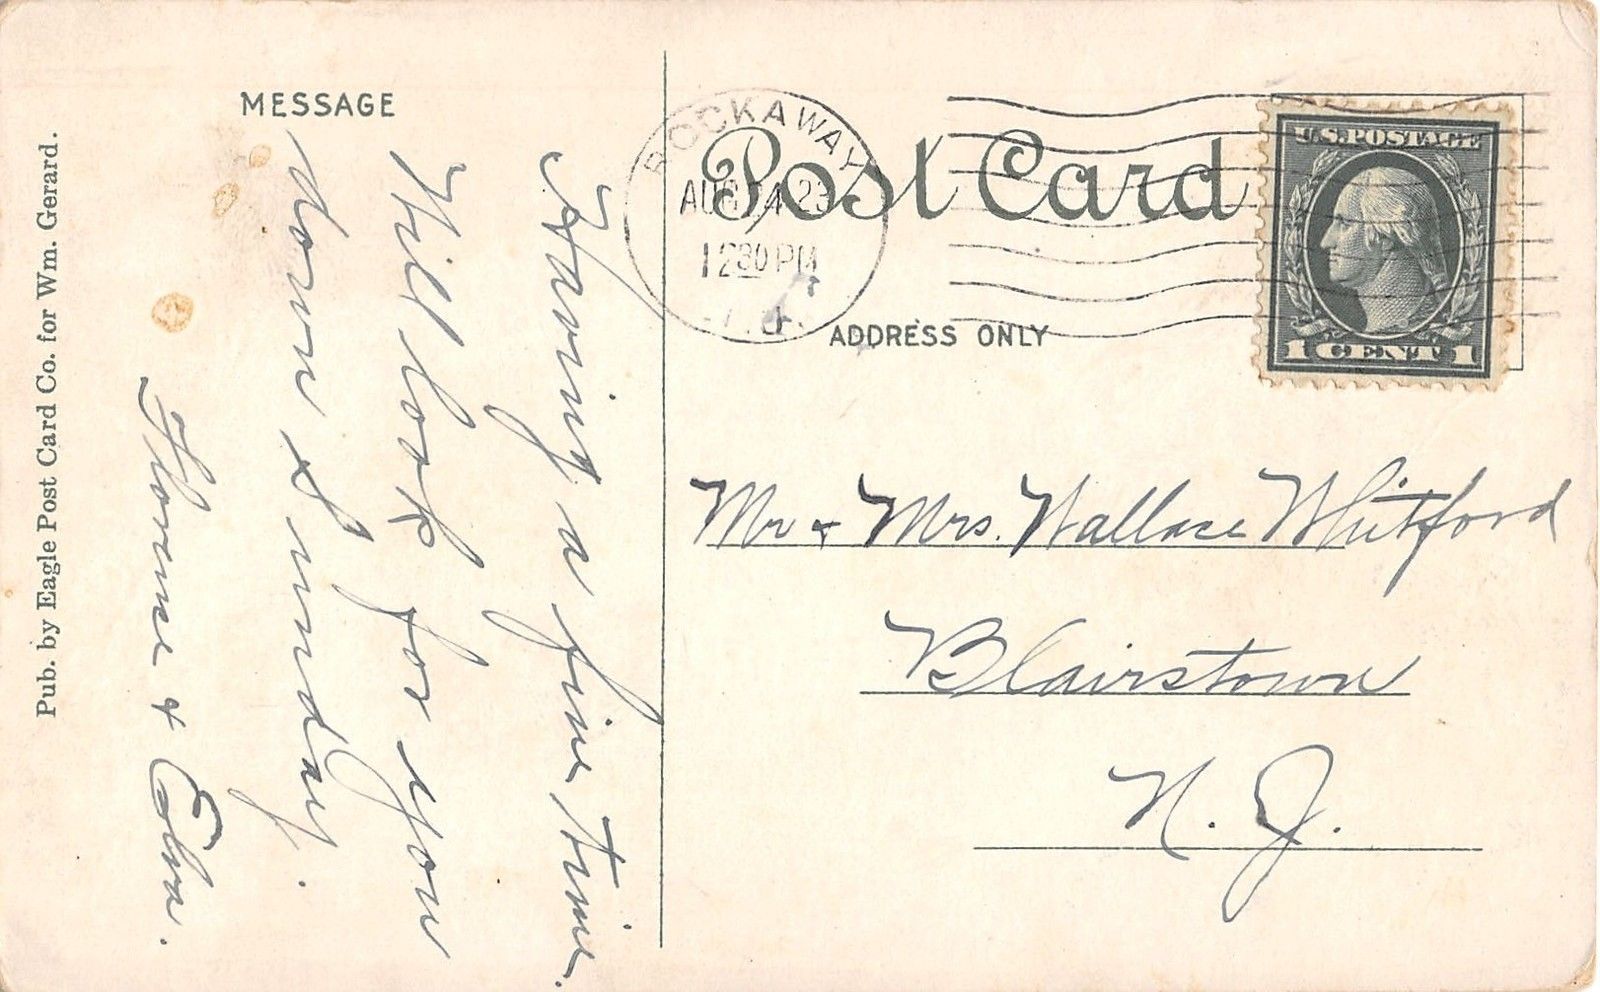 MESSAGE
Having a fine time.
Will look for you
down Sunday.
Florence & Edna.
Pub. by Eagle Post Card Co. for Wm. Gerard.
Post Card
ROCKAWAY
AUG 24 23
1230 PM
N.J.
ADDRESS ONLY
U.S. POSTAGE
1 CENT 1
Mr & Mrs. Wallace Whitford
Blairstown
N. J.